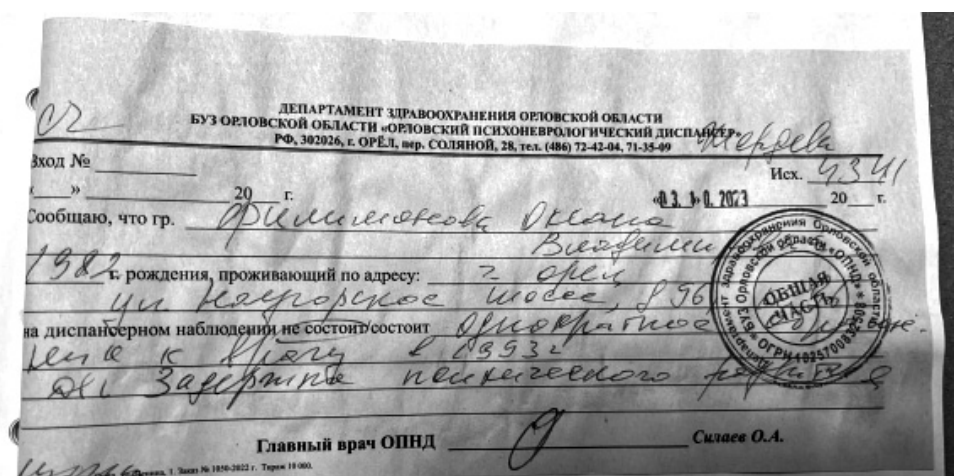 ДЕПАРТАМЕНТ ЗДРАВООХРАНЕНИЯ ОРЛОВСКОЙ ОБЛАСТИ
БУЗ ОРЛОВСКОЙ ОБЛАСТИ «ОРЛОВСКИЙ ПСИХОНЕВРОЛОГИЧЕСКИЙ ДИСПАНСЕР»
РФ, 302026, г. ОРЁЛ, пер. СОЛЯНОЙ, 28, тел. (486) 72-42-04, 71-35-09
Вход №
Исх. 4341
« » 20 г.
«03. 10. 2023 20 г.
Сообщаю, что гр. Филимонова Оксана
1982 г. рождения, проживающий по адресу: г. Орел
ул. шоссе, д 96
на диспансерном наблюдении не состоит/состоит однократное
к врачу в 1993г
Задержка психического развития
Главный врач ОПНД Силаев О.А.
Заказ № 1050-2022 г. Тираж 10 000.
Департамент здравоохранения Орловской области
БУЗ Орловской области «ОПНД»
ОБЩАЯ
ЧАСТЬ